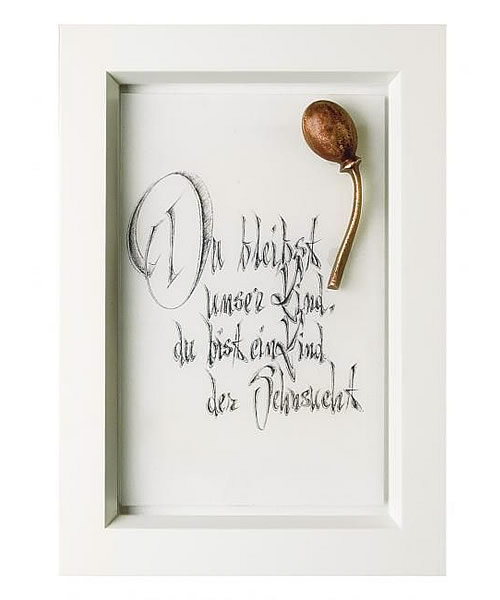 Du bleibst
unser Kind,
du bist ein Kind
der Sehnsucht